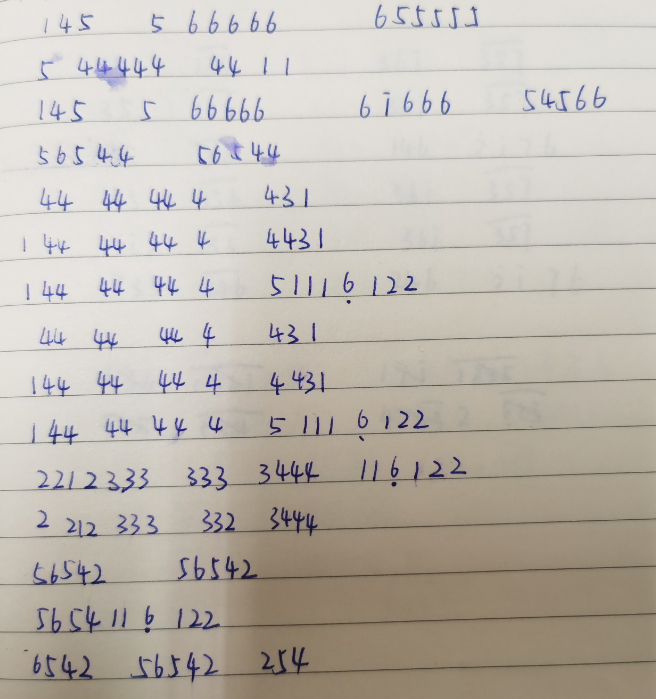 145 5 66666 655555
5 44444 44 11
145 5 66666 6i666 54566
56544 56544
44 44 44 4 431
144 44 44 4 4431
144 44 44 4 51116̣122
44 44 44 4 431
144 44 44 4 4431
144 44 44 4 5 1116̣122
2212333 333 3444 116̣122
2 212 333 332 3444
56542 56542
5654116̣ 122
6542 56542 254